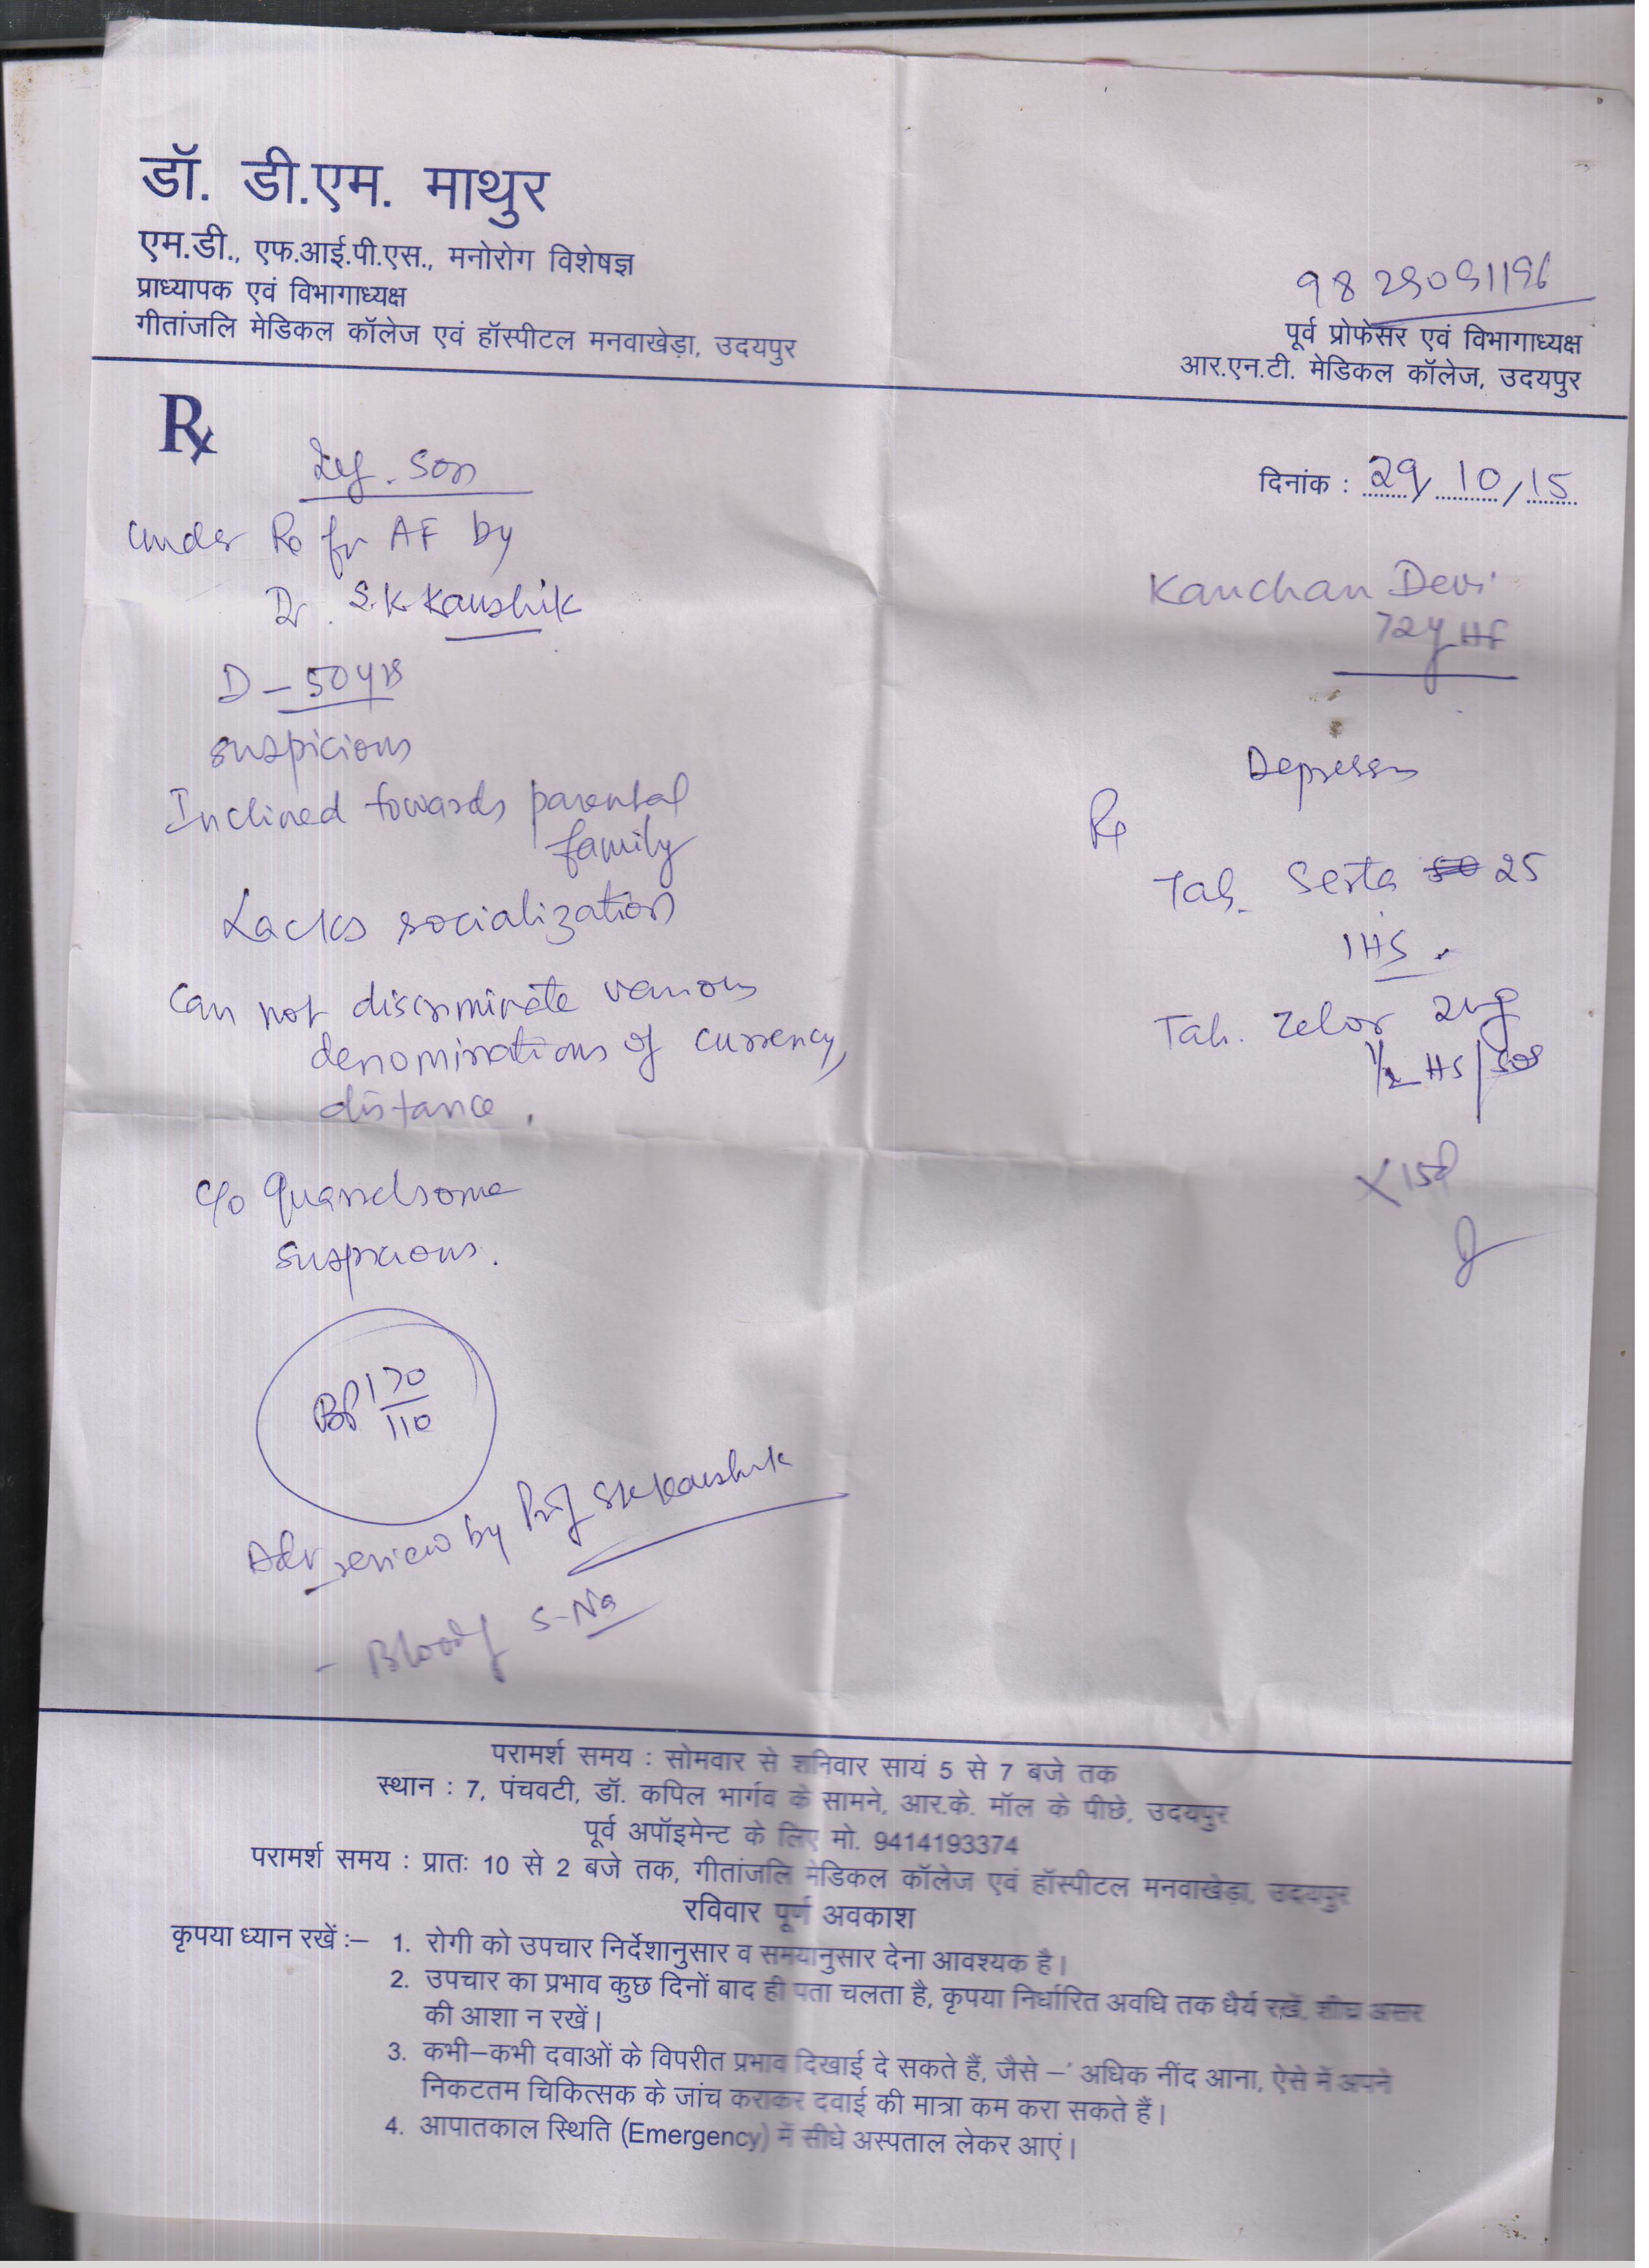 डॉ. डी.एम. माथुर
एम.डी., एफ.आई.पी.एस., मनोरोग विशेषज्ञ
प्राध्यापक एवं विभागाध्यक्ष
गीतांजलि मेडिकल कॉलेज एवं हॉस्पीटल मनवाखेड़ा, उदयपुर
पूर्व प्रोफेसर एवं विभागाध्यक्ष
आर.एन.टी. मेडिकल कॉलेज, उदयपुर
Rx
दिनांक : 29/10/15
son
under Rx for AF by
Dr. S.K. Kaushik
D - 50 yrs
suspicious
Inclined towards parental
family
Lacks socialization
Can not discriminate various
denominations of currency,
distance.
c/o Quarrelsome
suspicious.
BP 170
110
Adv review by Prof SK Kaushik
- Blood S-Na
Kanchan Devi
72y HF
Depression
Rx
Tab. Serta 25
1 HS.
Tab. Zelor 2mg
1/2 HS/SOS
X 15d
परामर्श समय : सोमवार से शनिवार सायं 5 से 7 बजे तक
स्थान : 7, पंचवटी, डॉ. कपिल भार्गव के सामने, आर.के. मॉल के पीछे, उदयपुर
पूर्व अपॉइमेन्ट के लिए मो. 9414193374
परामर्श समय : प्रातः 10 से 2 बजे तक, गीतांजलि मेडिकल कॉलेज एवं हॉस्पीटल मनवाखेड़ा, उदयपुर
रविवार पूर्ण अवकाश
कृपया ध्यान रखें :– 1. रोगी को उपचार निर्देशानुसार व समयानुसार देना आवश्यक है।
2. उपचार का प्रभाव कुछ दिनों बाद ही पता चलता है, कृपया निर्धारित अवधि तक धैर्य रखें, शीघ्र असर
की आशा न रखें।
3. कभी–कभी दवाओं के विपरीत प्रभाव दिखाई दे सकते हैं, जैसे –' अधिक नींद आना, ऐसे में अपने
निकटतम चिकित्सक के जांच कराकर दवाई की मात्रा कम करा सकते हैं।
4. आपातकाल स्थिति (Emergency) में सीधे अस्पताल लेकर आएं।